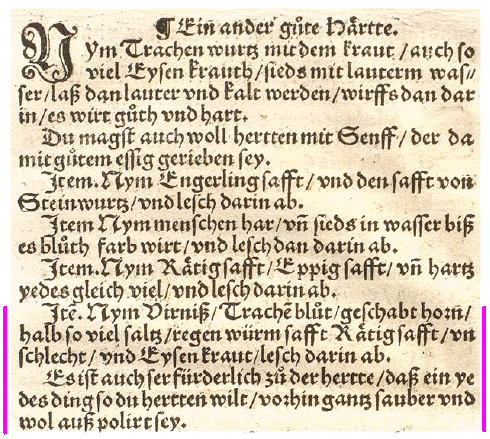 ¶ Ein ander gůte Hårtte.
NYm Trachen wurtz mit dem kraut / auch so
viel Eysen krauth / sieds mit lauterm was⸗
ser / laß dan lauter vnd kalt werden / wirffs dan dar
in / es wirt gůth vnd hart.
Du magst auch woll hertten mit Senff / der da
mit gůtem essig gerieben sey.
Item. Nym Engerling safft / vnd den safft von
Steinwurtz / vnd lesch darin ab.
Item Nym menschen har / vñ sieds in wasser biß
es blůth farb wirt / vnd lesch dan darin ab.
Item. Nym Råtig safft / Eppig safft / vñ hartz
yedes gleich viel / vnd lesch darin ab.
Itē. Nym Virniß / Trachē blůt / geschabt horñ /
halb so viel saltz / regen würm safft Råtig safft / vn
schlecht / vnd Eysen kraut / lesch darin ab.
Es ist auch ser fürderlich zů der hertte / daß ein ye
des ding so du hertten wilt / vorhin gantz sauber vnd
wol auß polirt sey.